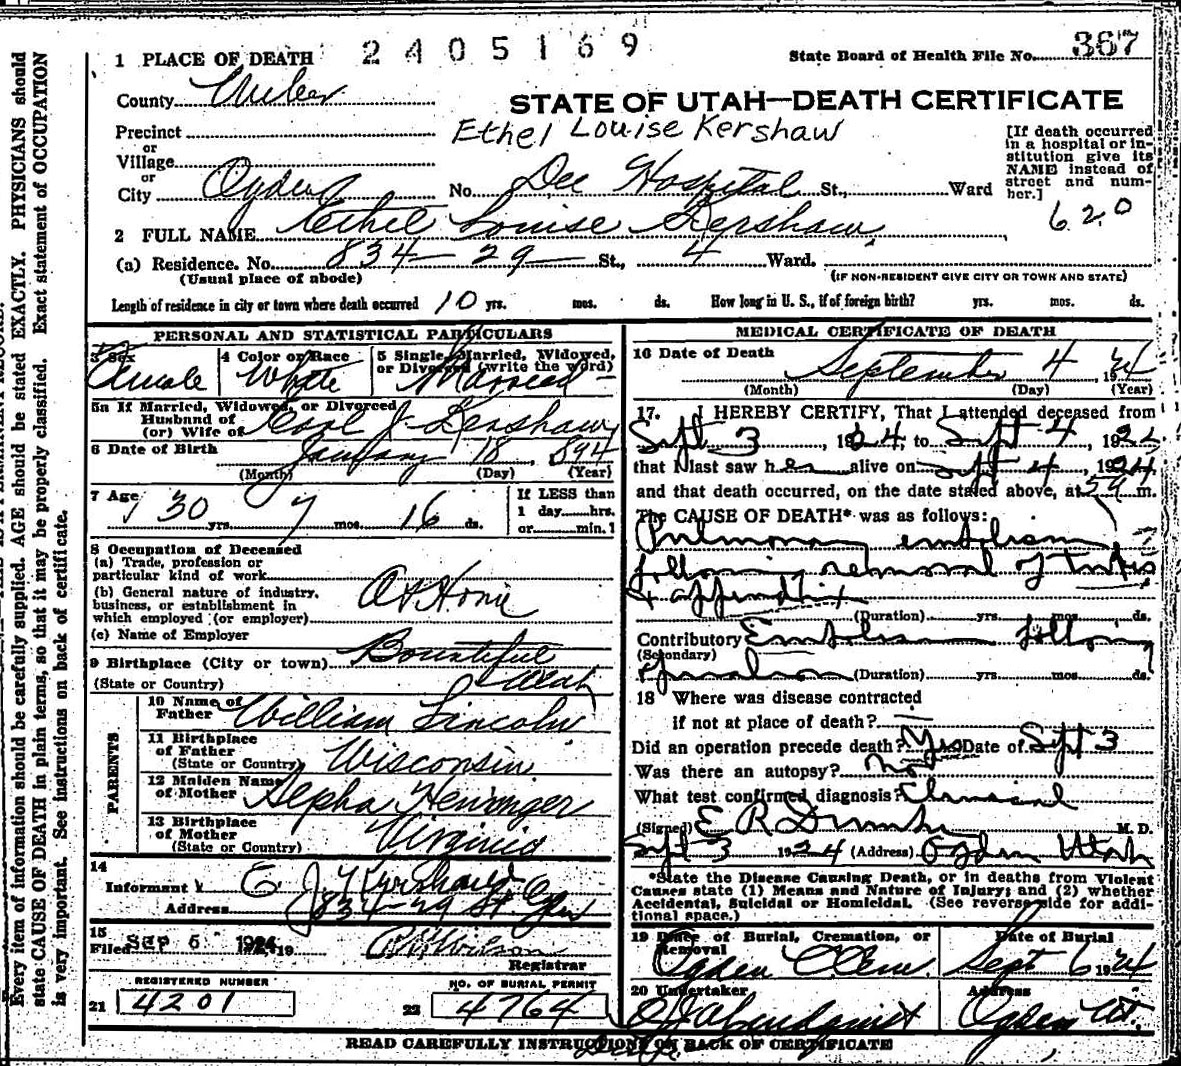 2405169
State Board of Health File No. 367
1 PLACE OF DEATH
County Weber
STATE OF UTAH—DEATH CERTIFICATE
Precinct
Ethel Louise Kershaw
or
Village
or
City Ogden No. Dee Hospital St., Ward
[If death occurred in a hospital or institution give its NAME instead of street and number.]
620
2 FULL NAME Ethel Louise Kershaw
(a) Residence. No. 834 - 29 St., 4 Ward.
(Usual place of abode) (IF NON-RESIDENT GIVE CITY OR TOWN AND STATE)
Length of residence in city or town where death occurred 10 yrs. mos. ds. How long in U. S., if of foreign birth? yrs. mos. ds.
PERSONAL AND STATISTICAL PARTICULARS
3 Sex Female
4 Color or Race White
5 Single, Married, Widowed, or Divorced (write the word) Married
5a If Married, Widowed, or Divorced
Husband of
(or) Wife of Earl J. Kershaw
6 Date of Birth January 18, 1894
(Month) (Day) (Year)
7 Age 30 yrs. 7 mos. 16 ds.
If LESS than
1 day hrs.
or min.
8 Occupation of Deceased
(a) Trade, profession or
particular kind of work
(b) General nature of industry,
business, or establishment in
which employed (or employer)
At Home
(c) Name of Employer
9 Birthplace (City or town) Bountiful
(State or Country) Utah
PARENTS
10 Name of Father William Lincoln
11 Birthplace of Father
(State or Country) Wisconsin
12 Maiden Name of Mother Alpha
13 Birthplace of Mother
(State or Country) Virginia
14
Informant E J Kershaw
Address 834-29 St. Ogden
15
Filed Sep 5 1924
Registrar
REGISTERED NUMBER
21 4201
NO. OF BURIAL PERMIT
22 4764
MEDICAL CERTIFICATE OF DEATH
16 Date of Death September 4 1924
(Month) (Day) (Year)
17. I HEREBY CERTIFY, That I attended deceased from
Sept 3, 1924, to Sept 4, 192
that I last saw her alive on Sept 4, 1924
and that death occurred, on the date stated above, at m.
The CAUSE OF DEATH* was as follows:
Pulmonary embolism
following removal of tubes
& appendix
(Duration) yrs. mos. ds.
Contributory Embolism following
(Secondary)
operation (Duration) yrs. mos. ds.
18 Where was disease contracted
if not at place of death?
Did an operation precede death? Yes Date of Sept 3
Was there an autopsy? no
What test confirmed diagnosis? Clinical
(Signed) E R M. D.
Sept 3 1924 (Address) Ogden Utah
*State the Disease Causing Death, or in deaths from Violent
Causes state (1) Means and Nature of Injury; and (2) whether
Accidental, Suicidal or Homicidal. (See reverse side for addi-
tional space.)
19 Place of Burial, Cremation, or Removal Ogden Cem.
Date of Burial Sept 6 1924
20 Undertaker
Address Ogden Ut.
READ CAREFULLY INSTRUCTIONS ON BACK OF CERTIFICATE
Every item of information should be carefully supplied. AGE should be stated EXACTLY. PHYSICIANS should
state CAUSE OF DEATH in plain terms, so that it may be properly classified. Exact statement of OCCUPATION
is very important. See instructions on back of certificate.